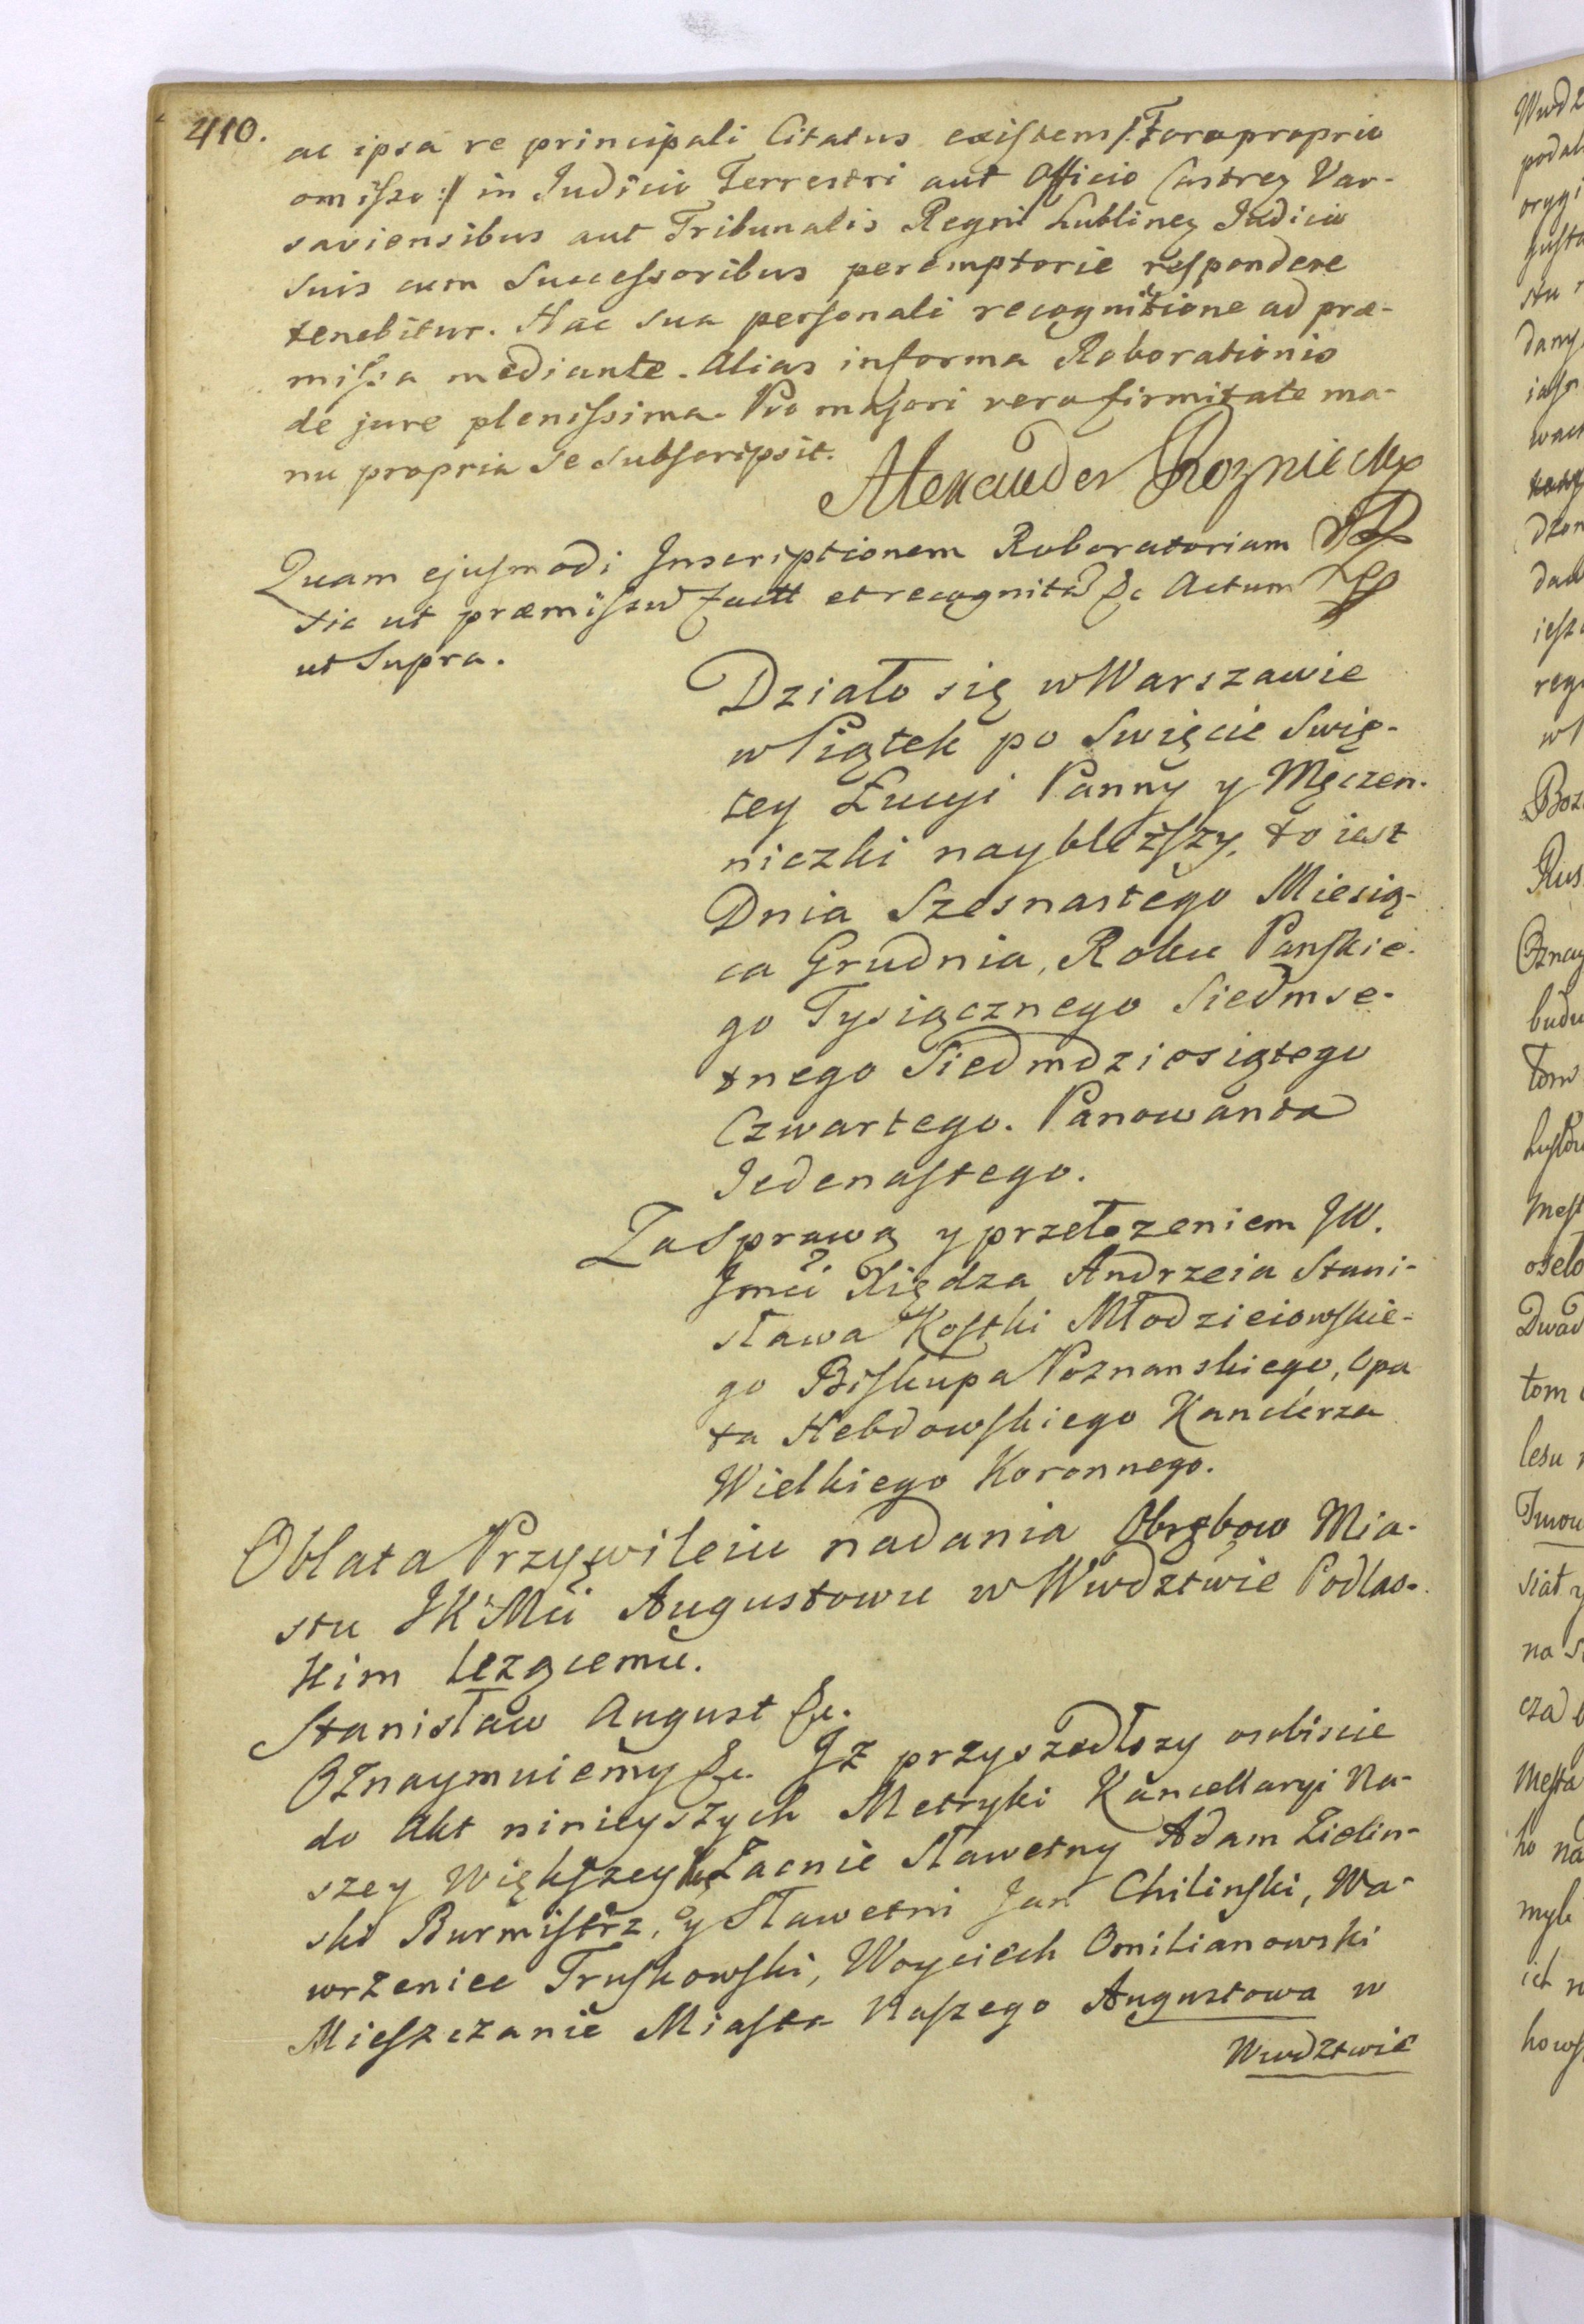 410.
ac ipsa re principali Citatus existens /: Foro proprio
omisso :/ in Judicio Terrestri aut Officio Castren Var-
saviensibus aut Tribunalis Regni Lublinen Judicio
suis cum Successoribus peremptorie respondere
tenebitur. Hac sua personali recognitione ad præ-
missa mediante. Alias in forma Roborationis
de jure plenissima. Pro majori vero firmitate ma-
nu propria se subscripsit.
Alexander Rozniecky
Quam ejusmodi Inscriptionem Roboratoriam
sic ut præmissum factt et recognitã &c Actum
ut Supra.
Działo się w Warszawie
w Piątek po Swięcie Swię-
tey Łucyi Panny y Męczen-
niczki naybliższy, to iest
Dnia Szesnastego Miesią-
ca Grudnia, Roku Panskie-
go Tysiącznego Siedmse-
tnego Siedmdziesiątego
Czwartego. Panowania
Jedenastego.
Za Sprawą y przełozeniem JW.
Jmci Xiędza Andrzeia Stani-
sława Kostki Młodzieiowskie-
go Biskupa Poznanskiego, Opa
ta Hebdowskiego Kanclerza
Wielkiego Koronnego.
Oblata Przywileiu nadania Obrębow Mia-
stu JKMci Augustowu w Wwdztwie Podlas-
kim leżącemu.
Stanisław August &c.
Oznaymuiemy &c. Iż przyszedłszy osobiscie
do Akt ninieyszych Metryki Kancellaryi Na-
szey Większey Zacnie Sławetny Adam Zielin-
ski Burmistrz, y Sławetni Jan Chilinski, Wa-
wrzeniec Truskowski, Woyciech Omilianowski
Mieszczanie Miasta Naszego Augustowa w
Wwdztwie